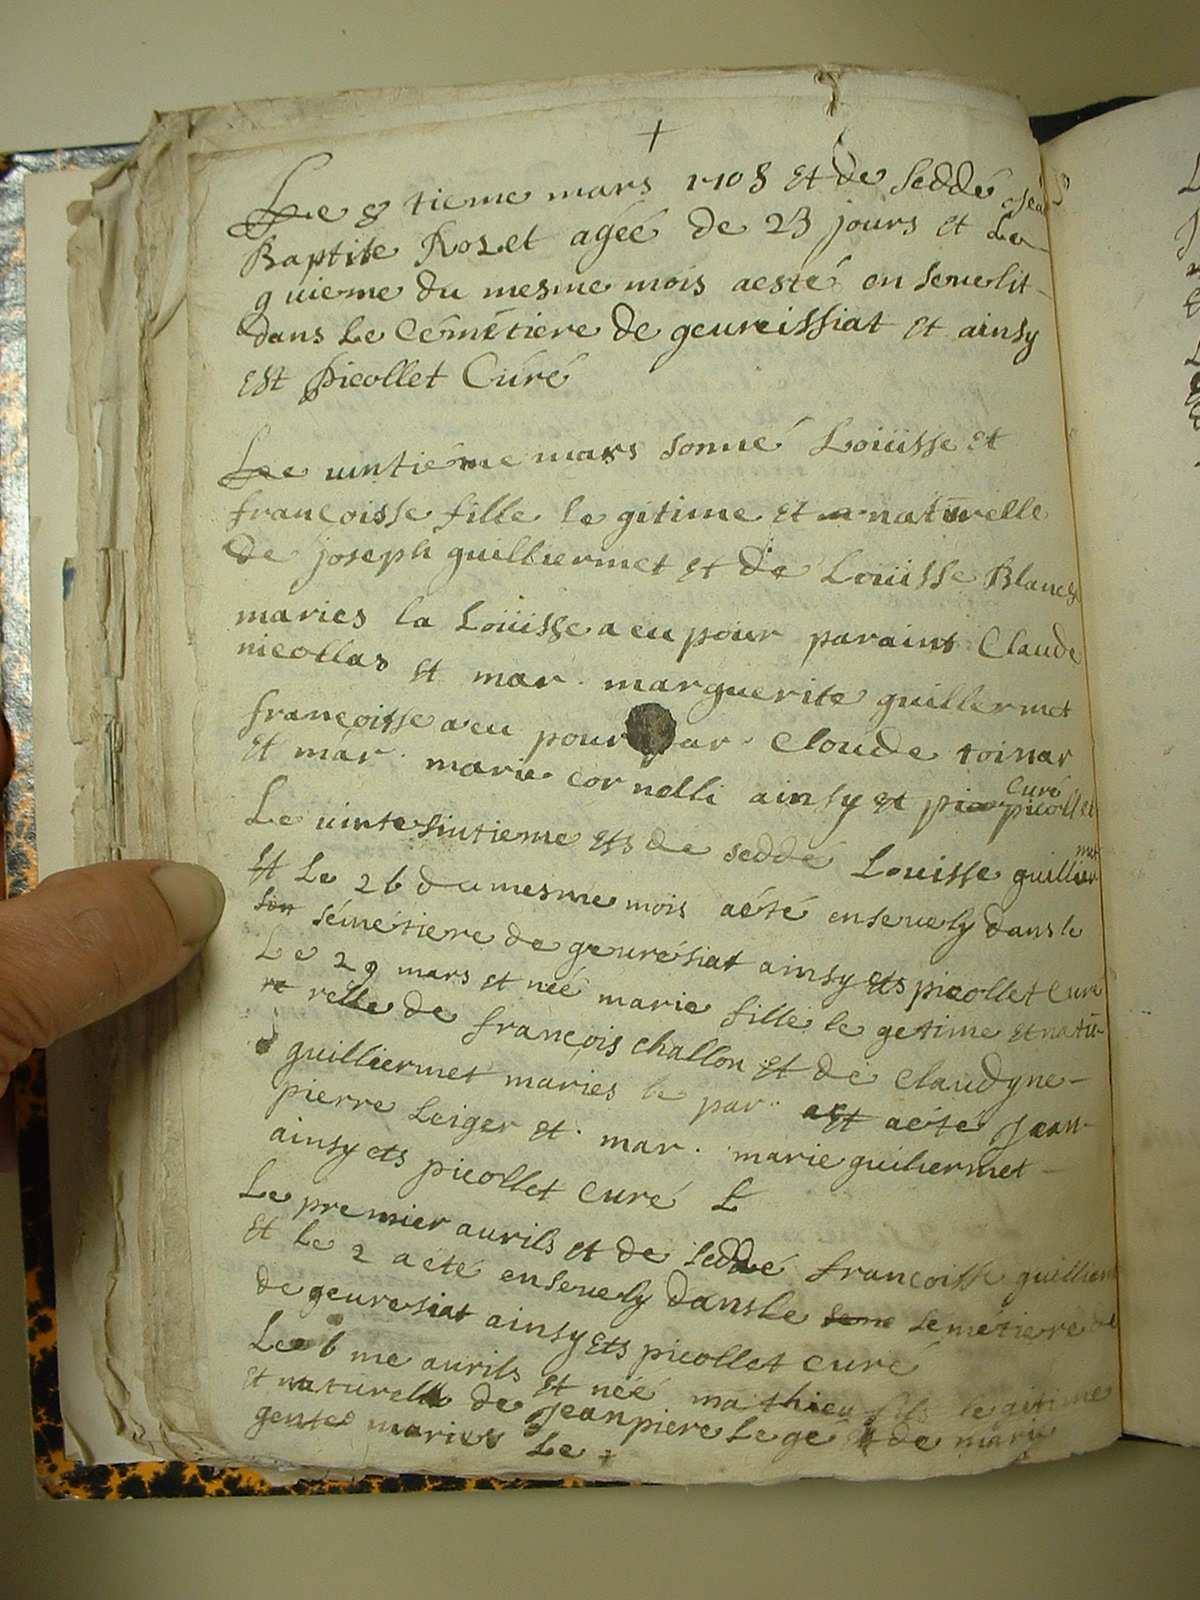 +
Le 8 tieme mars 1708 Et de seddé Jean
Baptite Rozet agéé de 23 jours et Le
9 uieme du mesme mois aesté en seuelit
dans Le Cémétiere de geureissiat et ainsy
Est picollet Curé
Le uintiéme mars sonné Loüisse et
françoisse fille le gitime et naturelle
de joseph guilliermet et de Loüisse Blanch
maries la Loüisse a eu pour paraint Claude
nicollas et mar. marguerite guillermet
françoisse a eu pour par. Cloude toinar
Et mar. marie cornelli ainsy et picollet Curé
Le uintesintieme ets de seddé Louisse guilliermet
Et Le 26 du mesme mois aété enseuely dans le
sémétiere de geurésiat ainsy ets picollet Curé
Le 29 mars et néé marie fille le getime et natu-
relle de françois challon et de claudyne
guilliermet maries le par. aété Jean
pierre Leiger et. mar. marie guiliermet
ainsy ets picollet Curé L
Le premier aurils et de seddé françoisse guilliem
Et Le 2 aété enseuely dans Le semétiere de
de geuresiat ainsy ets picollet curé
Le 6 me aurils et néé mathieu fils legitime
Et naturelle de Jeanpiere Lege de marie
gentes maries Le +